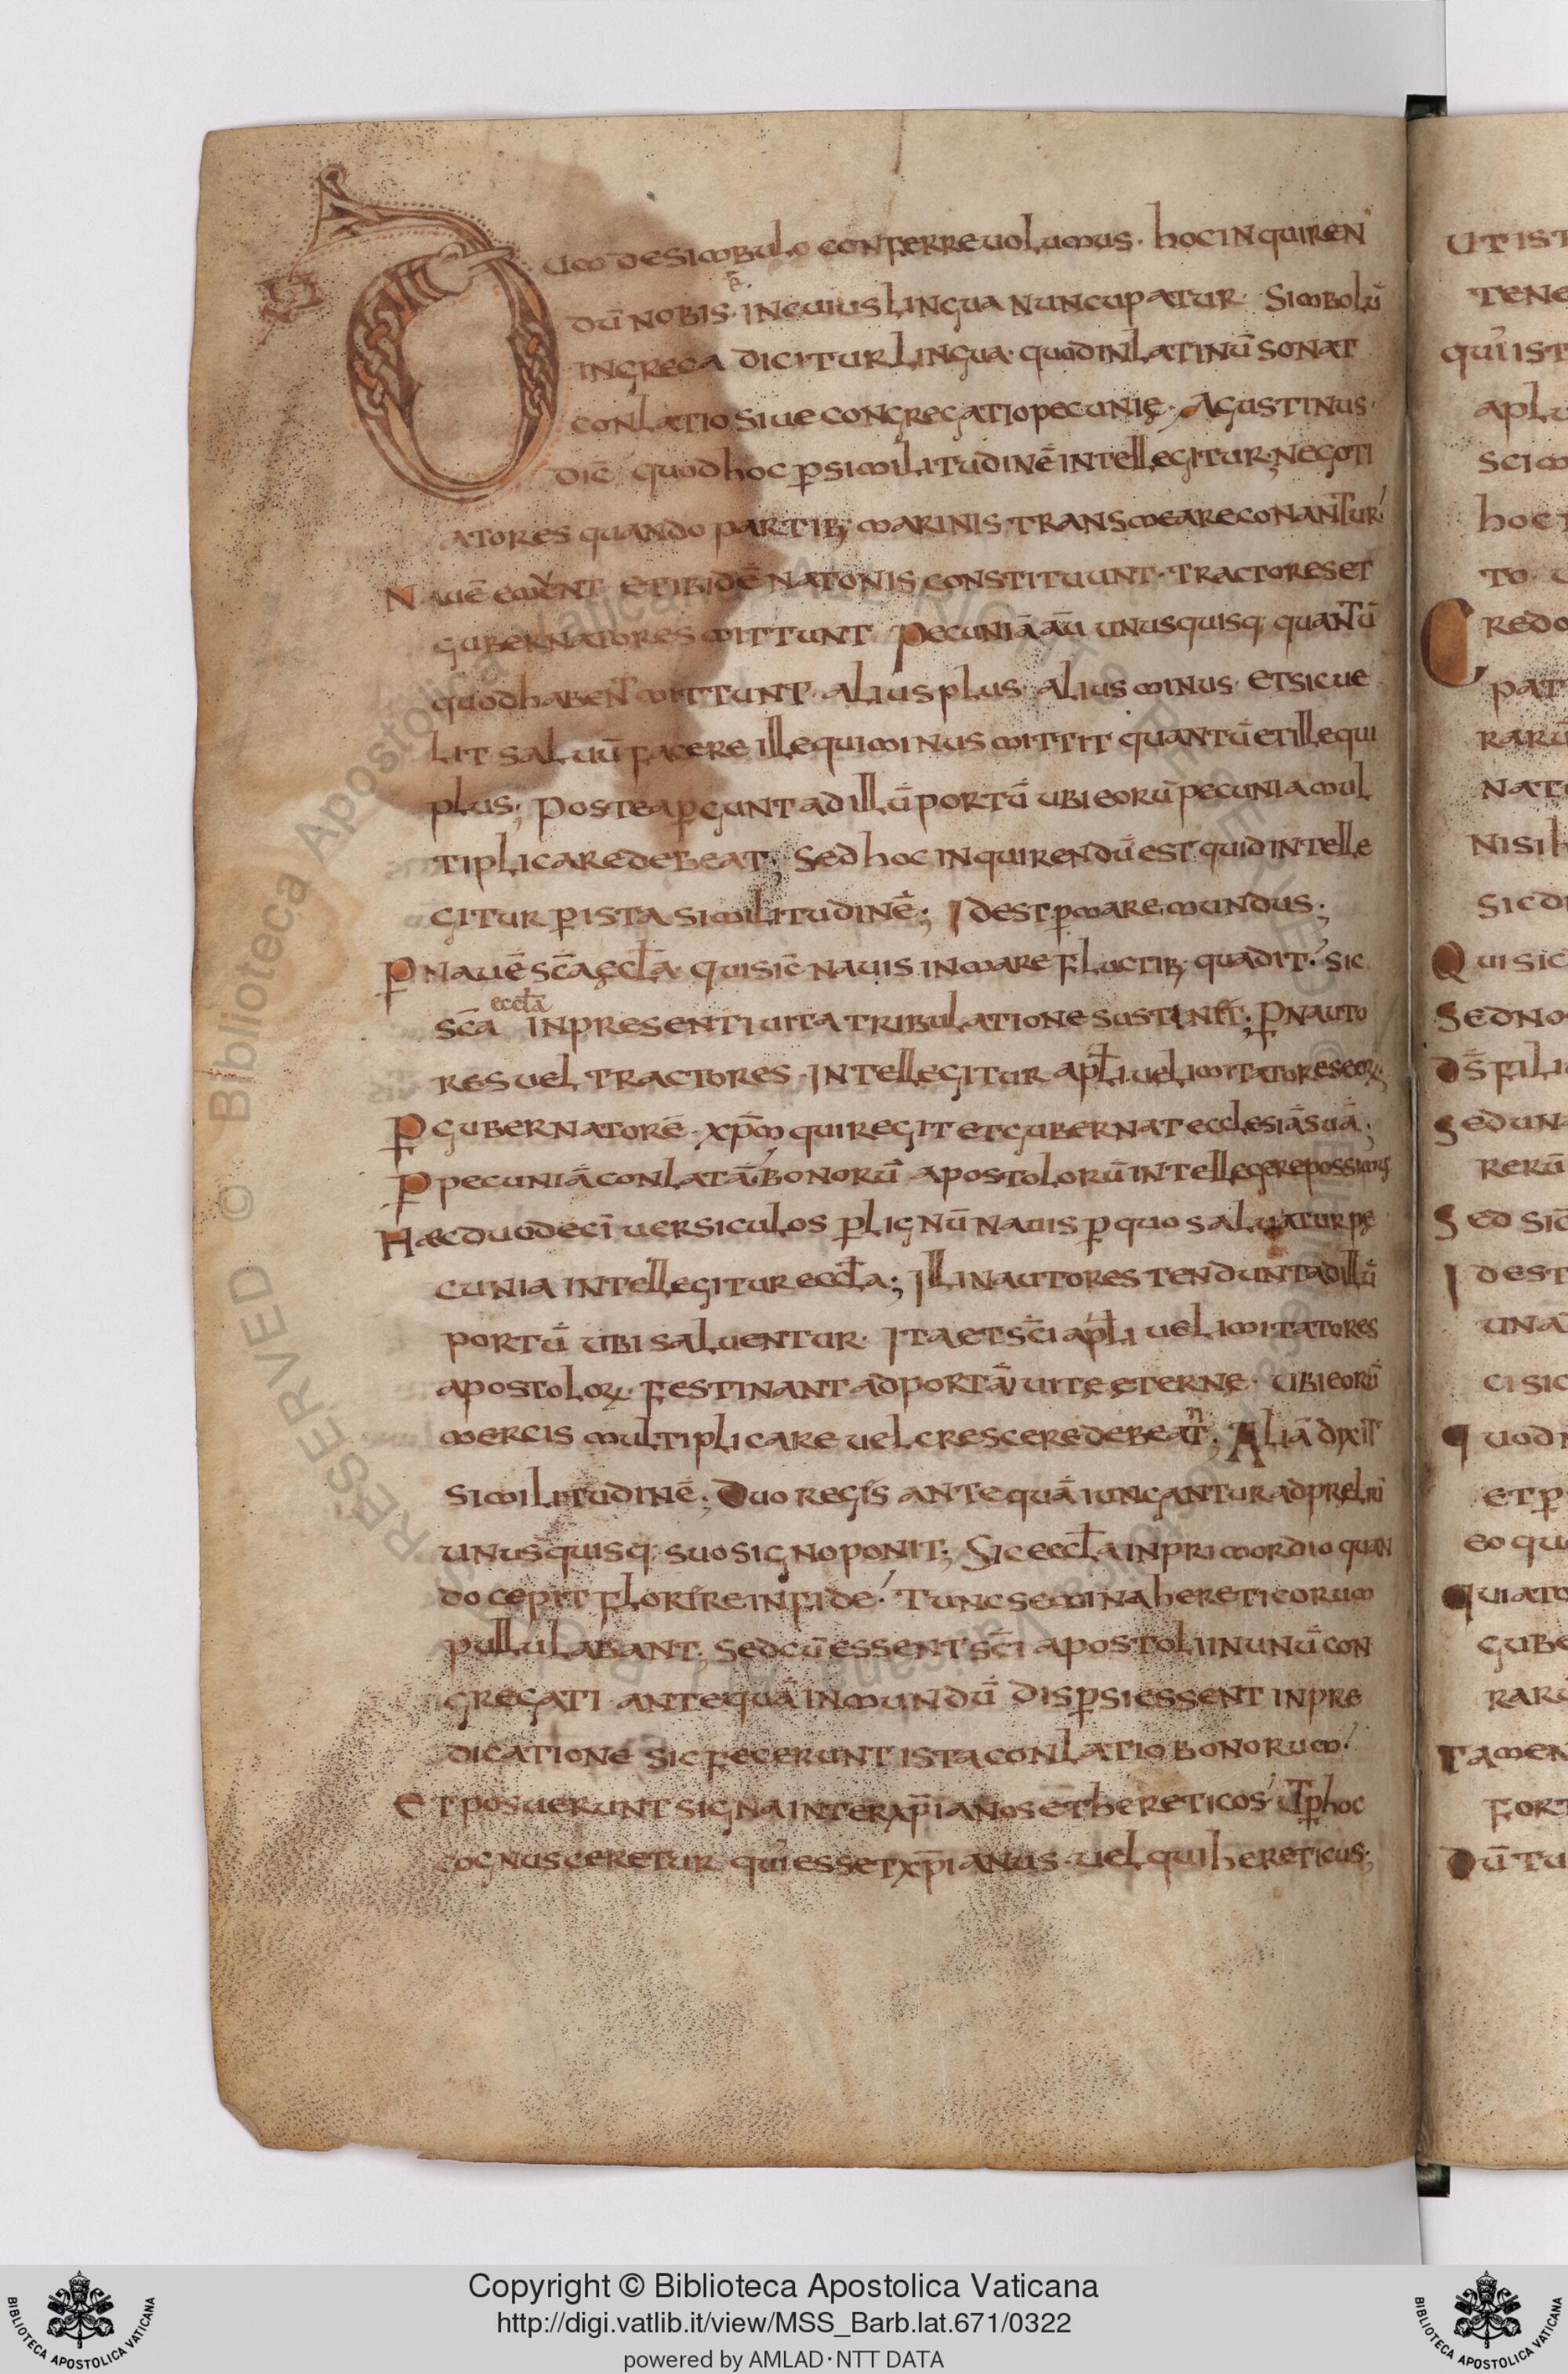 Dum desimbulo conferre uolumus · hoc inquiren
dū nobis · ē incuius lingua nuncupatur · Simbolū
ingreca dicitur lingua · quod inlatinū sonat
conlatio siue congregatio pecunię · Agustinus ·
dic̄ quod hoc ꝑ similitudinē intellegitur ; negoti
atores quando partib; marinis transmeare conantur ·
Nauē em̄nt et ibidē natonis constituunt · tractores et
gubernatores mittunt · Pecuniā aū unusquisq; quantū
quod haben̄t mittunt · alius plus · alius minus · et sic ue
lit saluū facere ille qui minus mittit quantū et ille qui
plus ; Postea ꝑgunt ad illū portū ubi eorū pecunia mul
tiplicare debeat ; Sed hoc inquirendū est quid intelle
gitur ꝑ ista similitudinē ; Id est ꝑ mare mundus ;
Ꝑ nauē sc̄a ęccl̄a · qui sic̄ nauis inmare fluctib; quadit · sic
sc̄a eccl̄a inpresenti uita tribulatione sustinet ; Ꝑ nauto
res uel tractores · Intellegitur apl̄i uel imitatores eoꝝ ;
Ꝑ gubernatorē · xp̄m qui regit et gubernat ecclesiā suā ;
Ꝑ pecuniā conlatā · bonorū apostolorū intellegere possimus
Haec duodecī uersiculos ꝑ lignū nauis ꝑ quo saluatur pe
cunia intellegitur eccl̄a ; Illi nautores tendunt ad illū
portū ubi saluentur · Ita et sc̄i apl̄i uel imitatores
apostoloꝝ · festinant ad portā uitę ęternę · ubi eorū
mercis multiplicare uel crescere debeant ; Aliā dixit
similitudinē ; Duo regis antequā iungantur ad preliū
unusquisq; suo signo ponit ; Sic eccl̄a inprimordio quan
do cepit florire infide · Tunc semina hereticorum
pullulabant ; Sed cū essent sc̄i apostoli inunū con
gregati antequā inmundū disꝑsi essent inpre
dicatione sic fecerunt ista conlatio bonorum ·
Et posuerunt signa inter xp̄ianos et hereticos · ut ꝑ hoc
cognusceretur qui esset xp̄ianus · uel qui hereticus ;
Copyright © Biblioteca Apostolica Vaticana
http://digi.vatlib.it/view/MSS_Barb.lat.671/0322
powered by AMLAD·NTT DATA
BIBLIOTECA APOSTOLICA VATICANA
BIBLIOTECA APOSTOLICA VATICANA